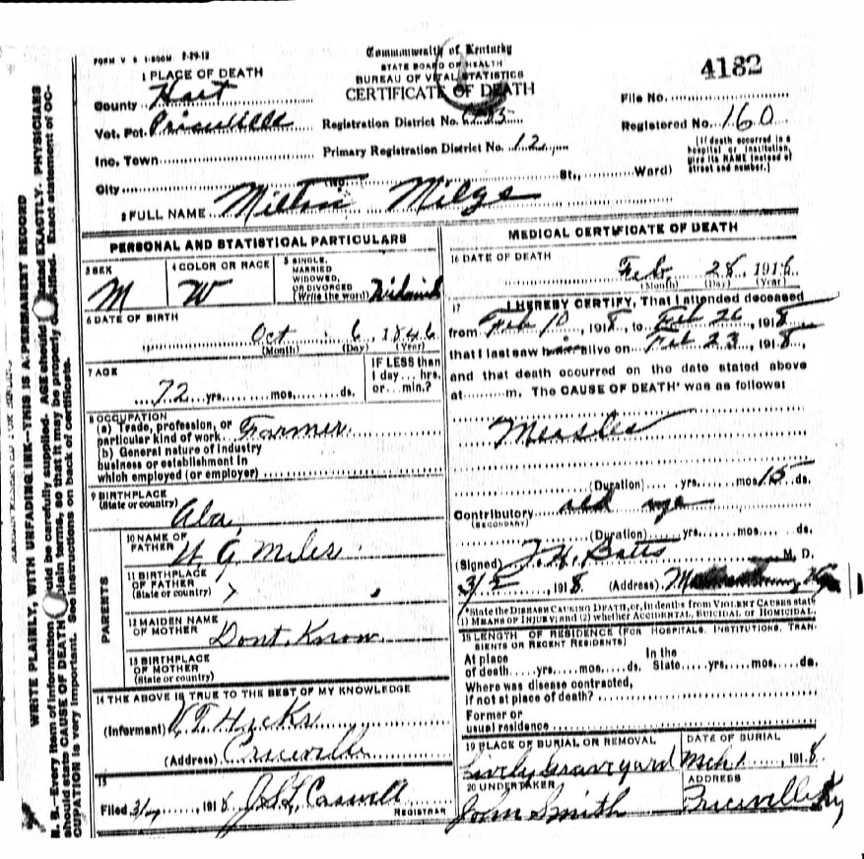 FORM V S 1-500M 8-29-12
Commonwealth of Kentucky
STATE BOARD OF HEALTH
BUREAU OF VITAL STATISTICS
CERTIFICATE OF DEATH
4182
1 PLACE OF DEATH
County Hart
Vot. Pct. Priceville
Inc. Town
City
Registration District No.
Primary Registration District No. 12
File No.
Registered No. 160
[If death occurred in a
hospital or institution,
give its NAME instead of
street and number.]
(No. St., Ward)
2 FULL NAME Milton
PERSONAL AND STATISTICAL PARTICULARS
3 SEX
M
4 COLOR OR RACE
W
5 SINGLE,
MARRIED
WIDOWED,
OR DIVORCED
(Write the word)
6 DATE OF BIRTH
Oct 6, 1846
(Month) (Day) (Year)
7 AGE
72 yrs. mos. ds.
IF LESS than
1 day... hrs.
or... min.?
8 OCCUPATION
(a) Trade, profession, or
particular kind of work Farmer
(b) General nature of industry
business or establishment in
which employed (or employer)
9 BIRTHPLACE
(State or country)
Ala
PARENTS
10 NAME OF
FATHER
W. G. Miles
11 BIRTHPLACE
OF FATHER
(State or country) ?
12 MAIDEN NAME
OF MOTHER
Dont Know
13 BIRTHPLACE
OF MOTHER
(State or country)
14 THE ABOVE IS TRUE TO THE BEST OF MY KNOWLEDGE
(Informant) V. T. Hicks
(Address) Priceville
15
Filed 3/7, 1918 Caswell
REGISTRAR
MEDICAL CERTIFICATE OF DEATH
16 DATE OF DEATH
Feb. 28, 1918
(Month) (Day) (Year)
17 I HEREBY CERTIFY, That I attended deceased
from Feb 10, 1918, to Feb 26, 1918,
that I last saw him alive on Feb 23, 1918,
and that death occurred on the date stated above
at m. The CAUSE OF DEATH* was as follows:
Measles
(Duration) yrs. mos. 15 ds.
Contributory old age
(SECONDARY)
(Duration) yrs. mos. ds.
(Signed) J. H. Batts M. D.
3/5, 1918 (Address)
*State the DISEASE CAUSING DEATH, or, in deaths from VIOLENT CAUSES state
(1) MEANS OF INJURY; and (2) whether ACCIDENTAL, SUICIDAL OR HOMICIDAL.
18 LENGTH OF RESIDENCE (FOR HOSPITALS, INSTITUTIONS, TRAN-
SIENTS OR RECENT RESIDENTS)
At place
of death yrs. mos. ds.
In the
State yrs. mos. ds.
Where was disease contracted,
if not at place of death?
Former or
usual residence
19 PLACE OF BURIAL OR REMOVAL
Lively Graveyard
DATE OF BURIAL
Mch. 1, 1918
20 UNDERTAKER
John Smith
ADDRESS
Priceville Ky
MARGIN RESERVED FOR BINDING
WRITE PLAINLY, WITH UNFADING INK—THIS IS A PERMANENT RECORD
N. B.—Every item of information should be carefully supplied. AGE should be stated EXACTLY. PHYSICIANS
should state CAUSE OF DEATH in plain terms, so that it may be properly classified. Exact statement of OC-
CUPATION is very important. See instructions on back of certificate.